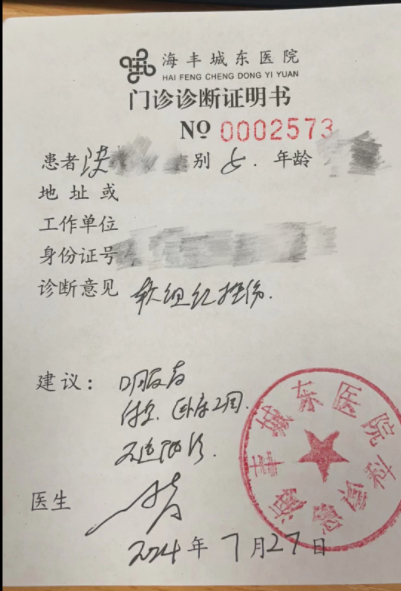 海丰城东医院
HAI FENG CHENG DONG YI YUAN
门诊诊断证明书
NO 0002573
患者 别 女. 年龄
地址或
工作单位
身份证号
诊断意见 软组织挫伤.
建议:
休息. 卧床2周.
不适随诊.
医生
2024年7月27日
海丰城东医院
急诊科